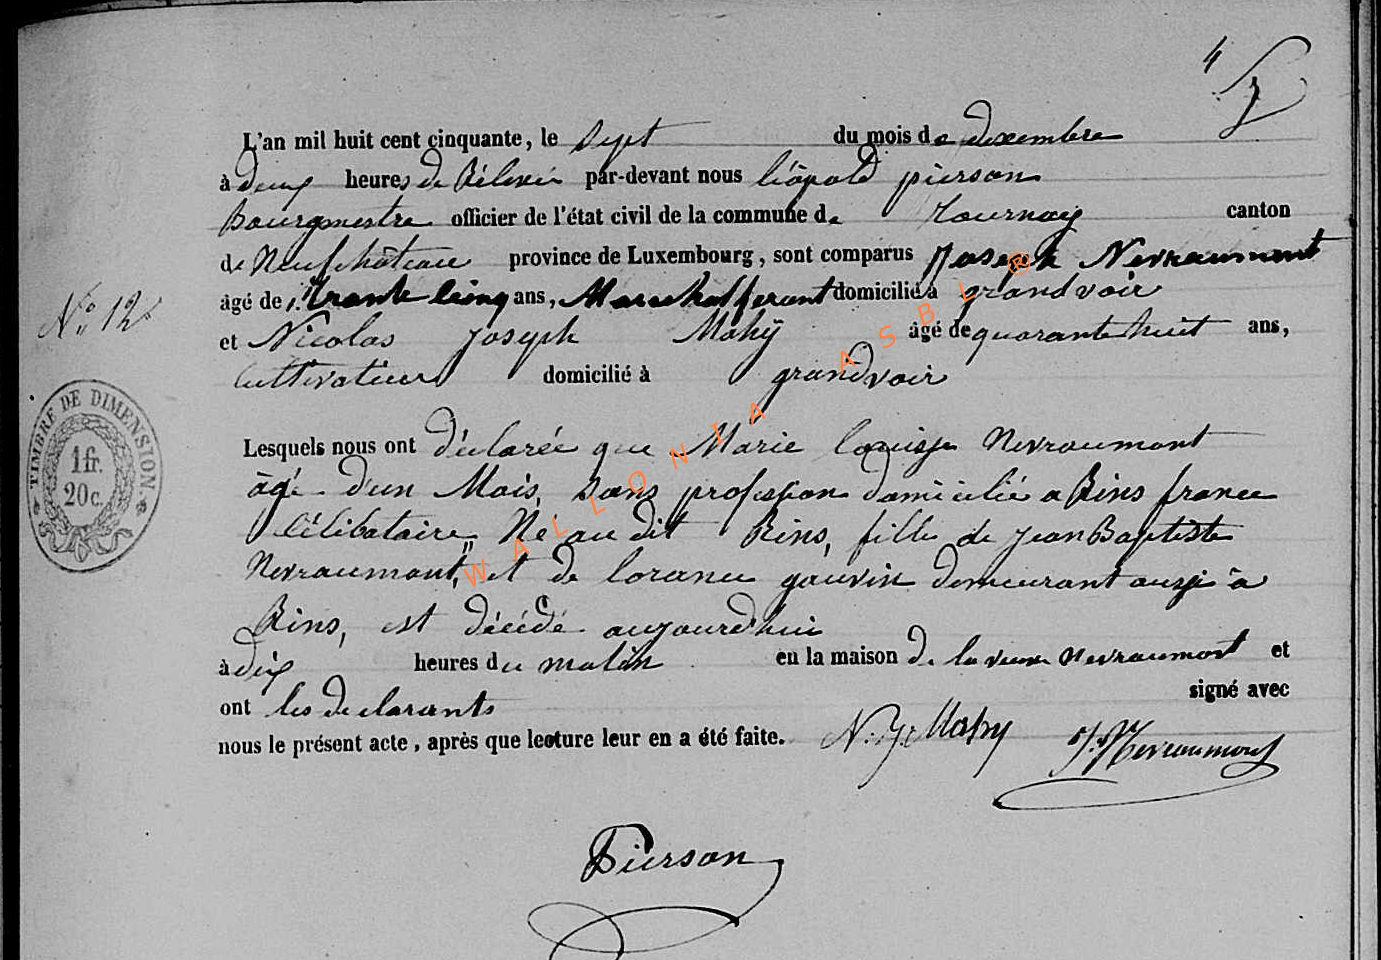 4
L'an mil huit cent cinquante, le Sept du mois de dexembre
à deux heures de Rélevée par-devant nous léopold pierson
Bourgmestre officier de l'état civil de la commune de Tournay canton
de Neufchâteau province de Luxembourg, sont comparus Joseph Nevraumont
âgé de trente cinq ans, Marechal ferant domicilié à grandvoir
N° 12
et Nicolas Joseph Mahÿ âgé de quarante huit ans,
Cultivateur domicilié à grandvoir
TIMBRE DE DIMENSION
1 fr.
20 c.
Lesquels nous ont déclarée que Marie louisse Nevraumont
âgé d'un Mois, sans profession domiciliée a Rins france
Célibataire, Né au dit Rins, fille de Jean Baptiste
Nevraumont, et de lorance gouvin demeurant aussi à
Rins, est décédé aujourd'hui
à dix heures du matin en la maison de la veuve Nevraumont et
ont les declarants signé avec
nous le présent acte, après que lecture leur en a été faite. N. J. Mahy J. Nevraumont
Pierson
WALLONIA ASBL ®